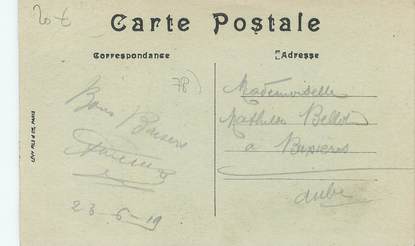 20 €
Carte Postale
Correspondance
Adresse
78
Mademoiselle
Bons Baisers
Mathilde Bellot
à Bexières
Aube
23-6-19
LÉVY FILS & CIE, PARIS